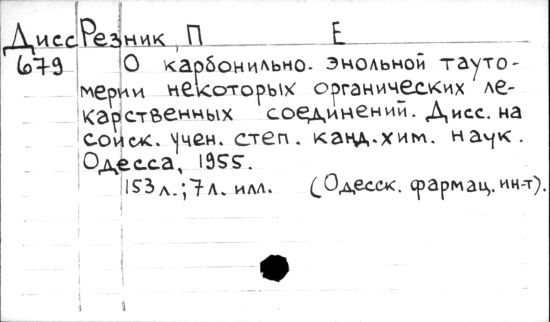 Дисс Резник П Е
679 О карбонильно-энольной тауто-
мерии некоторых органических ле-
карственных соединений. Дисс. на
соиск. учен. степ. канд.хим. наук.
Одесса, 1955.
153 л.; 7 л. илл. (Одесск. фармац. ин-т).